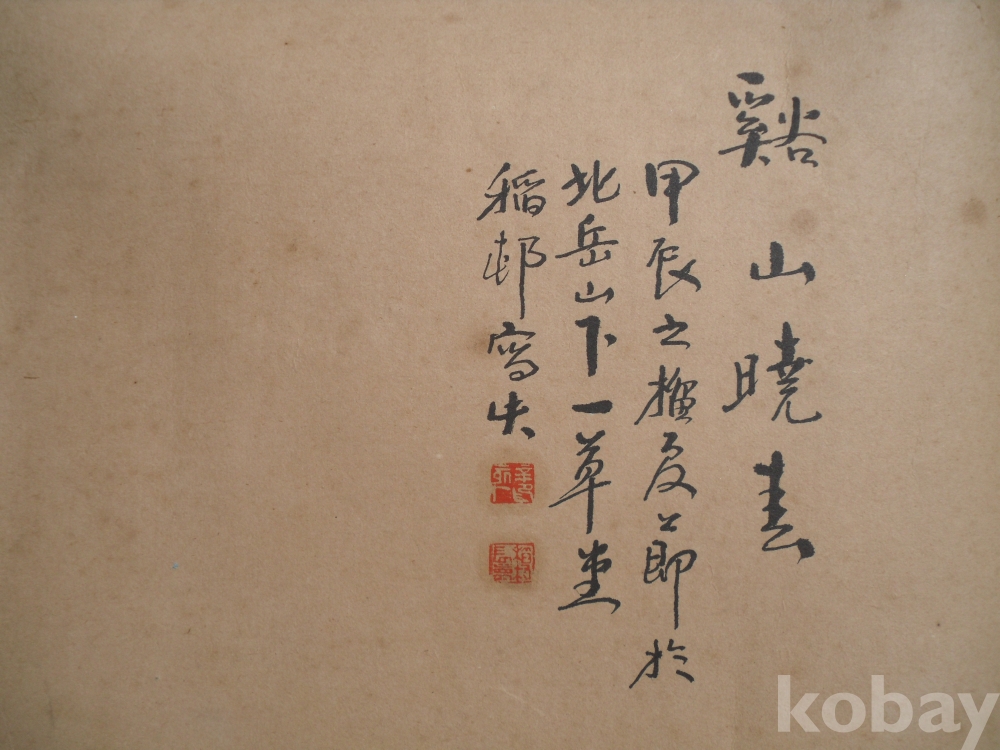 谿山曉春
甲辰之榴夏節於
北岳山下一草堂
稻邨寫
kobay